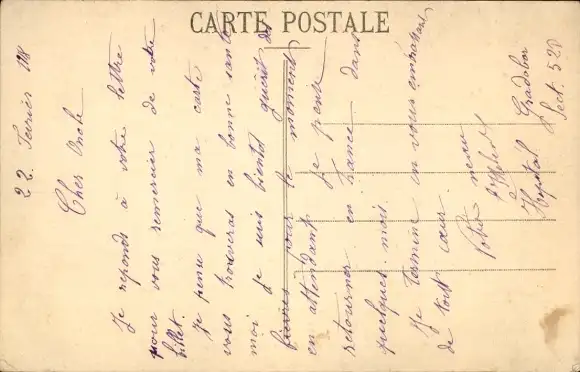 CARTE POSTALE
22 Février 1918
Cher Oncle
Je reponds à votre lettre
pour vous remercier de votre
billet.
Je pense que ma carte
vous trouveras en bonne santé
moi je suis bientot guérit des
fievres pour le moment
en attendant je pense
retourner en France dans
quelques mois.
Je termine en vous embrassant
de tout cœur.
Votre neveu
Hopital
Sect. 520